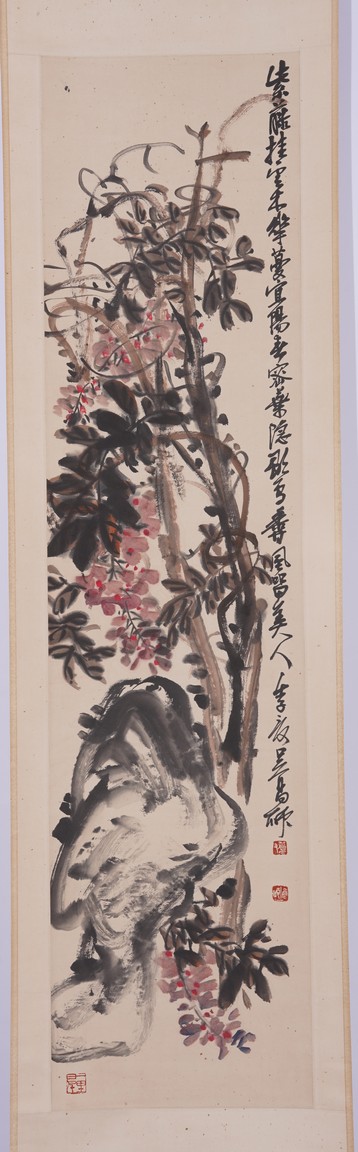 紫藤挂雲木華蔓宜陽春密葉隱歌鳥香風留美人 李句 吳昌碩